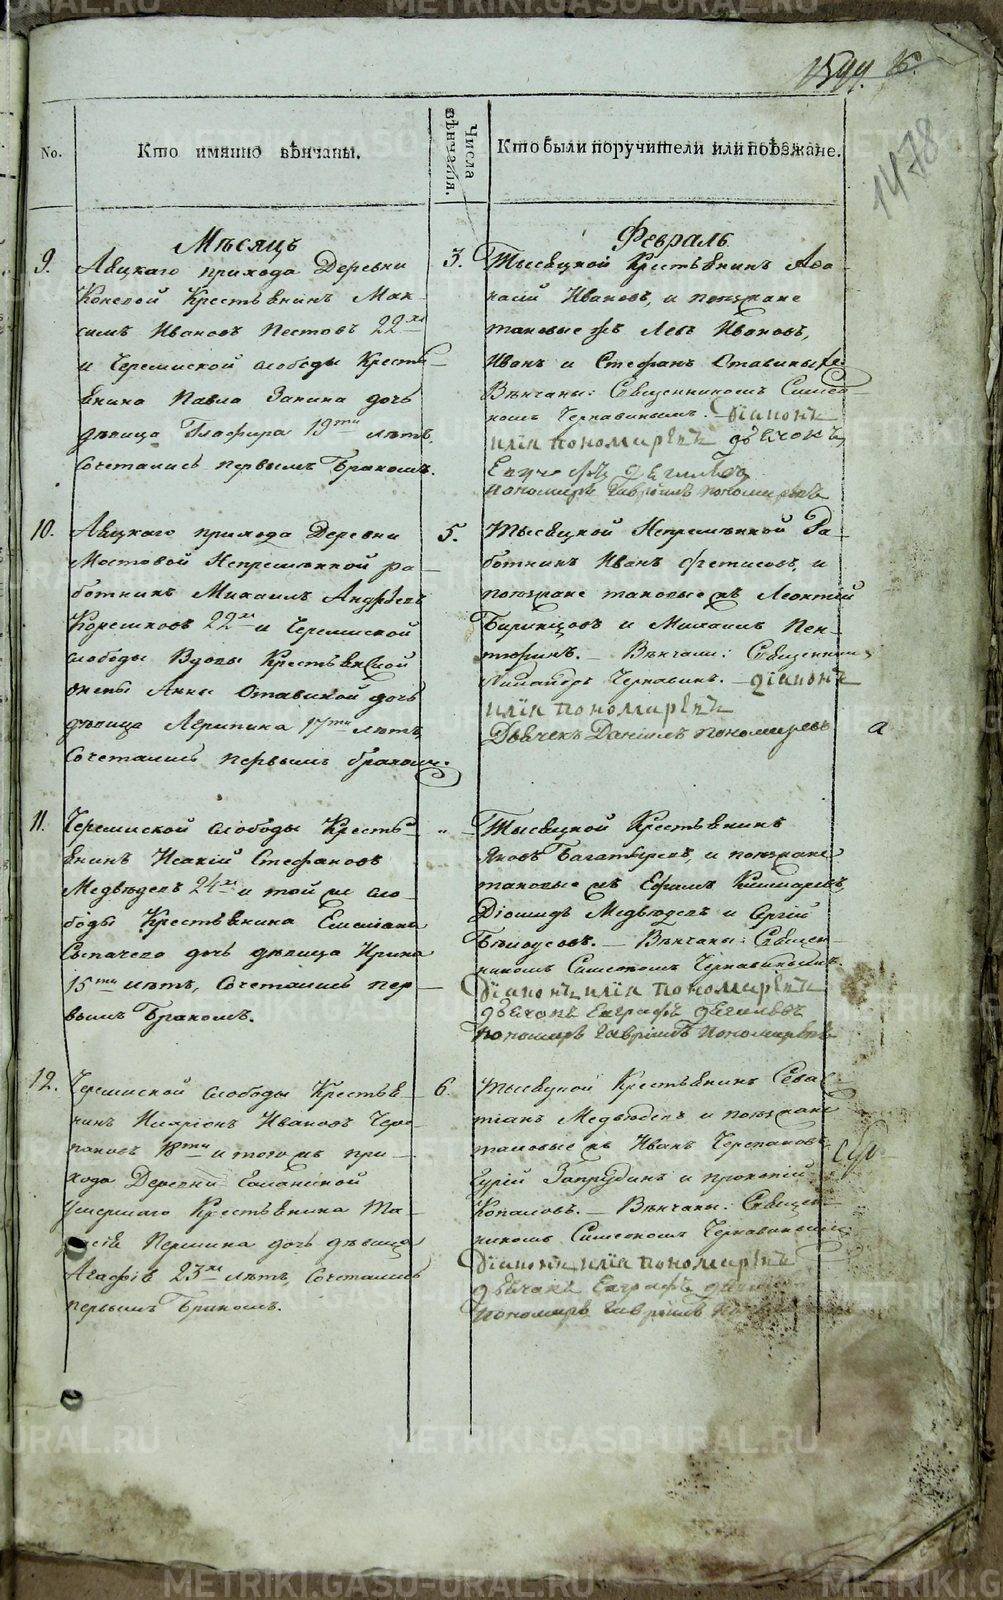 1599.
1478
No.
Кто имянно вѣнчаны.
Числа вѣнчанiя.
Кто были поручители или поѣзжане.
Мѣсяцъ
Февраль
9.
Аяцкаго прихода Деревни
Коневой Крестьянинъ Мак-
симъ Ивановъ Пестовъ 22хъ
и Черемиской слободы Кресть-
янина Павла Зонина дочь
дѣвица Глафира 19ти лѣтъ.
Сочетались первымъ Бракомъ.
3.
Тысяцкой Крестьянинъ Афо-
насiй Ивановъ, и поѣзжане
таковые жъ Левъ Ивановъ,
Иванъ и Стефанъ Ставины
Вѣнчаны: Священникомъ Симео-
номъ Чернавинымъ. Дiаконъ
илiа пономаревъ дьячокъ
пономарь гаврiилъ пономаревъ
10.
Аяцкаго прихода Деревни
Мостовой Непремѣнной ра-
ботникъ Михаилъ Андреевъ
Корешковъ 22хъ и Черемиской
слободы Вдовы Крестьянской
жены Анны Ставиной дочь
дѣвица Агрипина 17ти лѣтъ,
Сочетались первымъ бракомъ.
5.
Тысяцкой Непремѣнной Ра-
ботникъ Иванъ Фетисовъ, и
поѣзжане таковые жъ Леонтий
и Михаилъ Пен-
тюринъ. – Вѣнчали: Священникъ
Никандръ Чернавинъ. – дiаконъ
илiа пономаревъ
Дьячекъ Данiилъ пономаревъ
а
11.
Черемиской слободы Кресть-
янинъ Исакiй Стефановъ
Медведевъ 24хъ и той же сло-
боды Крестьянина Емелiана
Сыпачево дочь дѣвица Ирина
15ти лѣтъ, Сочетались пер-
вымъ Бракомъ.
„
Тысяцкой Крестьянинъ
Яковъ Багатыревъ, и поѣзжане
таковые жъ Ефимъ
Дiомидъ Медведевъ и Сергiй
Бѣлоусовъ. – Вѣнчаны: Священ-
никомъ Симеономъ Чернавинымъ.
Дiаконъ илiа пономаревъ
дьячокъ Евграфъ дягилевъ
пономарь гаврiилъ пономаревъ
12.
Черемиской слободы Крестья-
нинъ Иларiонъ Ивановъ Чере-
пановъ 18ти и того жъ при-
хода Деревни
умершаго Крестьянина
Першина дочь дѣвица
Агафiя 23хъ лѣтъ, Сочетались
первымъ Бракомъ.
6.
Тысяцкой Крестьянинъ Сева-
тiанъ Медведевъ и поѣзжане
таковые жъ Иванъ Черепановъ
Гурiй Запрудинъ и прокопiй
Копаловъ. – Вѣнчаны: Священ-
никомъ Симеономъ Чернавинымъ
Дiаконъ илiа пономаревъ
дьячокъ Евграфъ
пономарь гаврiилъ
METRIKI.GASO-URAL.RU